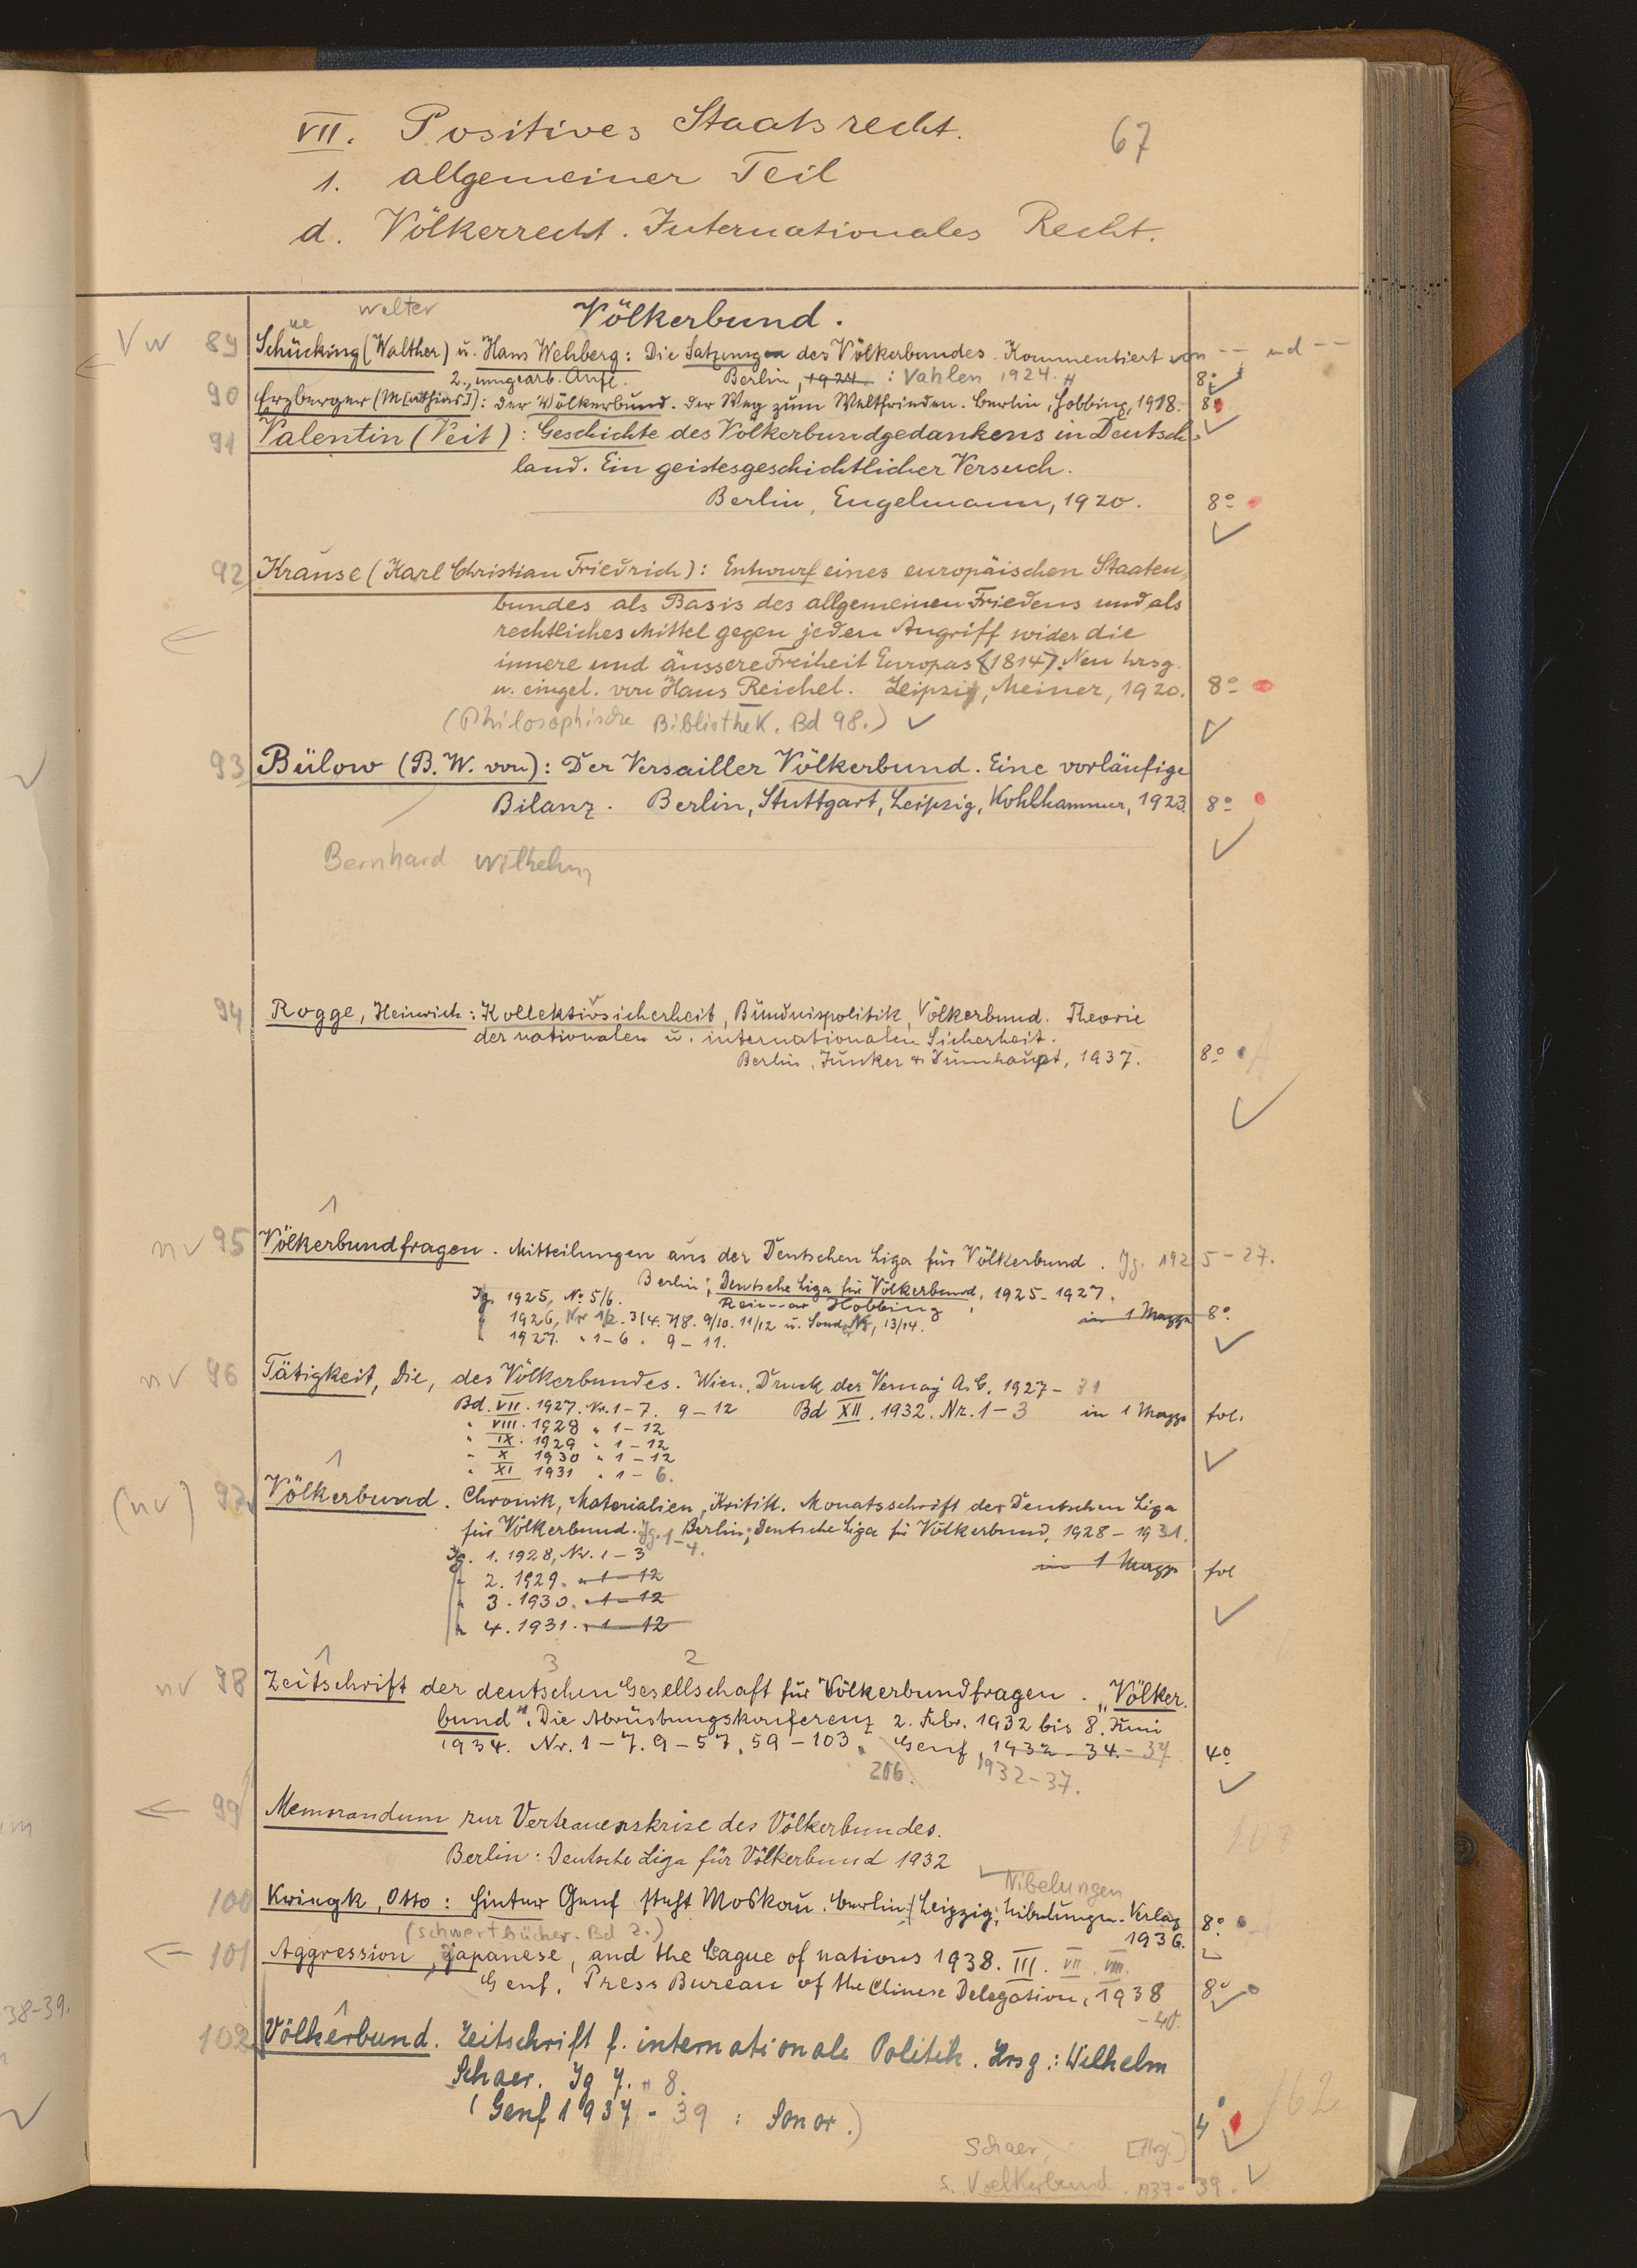 VII. Positives Staatsrecht.
67
1. allgemeiner Teil
d. Völkerrecht. Internationales Recht.
Völkerbund.
ue
Walter
Vw 89 Schücking (Walther) u. Hans Wehberg: Die Satzungen des Völkerbundes. Kommentiert von -- und --
2., umgearb. Aufl. Berlin, 1924. : Vahlen 1924. 8°
90 Erzberger (M[atthias]): Der Völkerbund. Der Weg zum Weltfrieden. Berlin, Hobbing, 1918. 8°
91 Valentin (Veit): Geschichte des Völkerbundgedankens in Deutsch-
land. Ein geistesgeschichtlicher Versuch.
Berlin, Engelmann, 1920. 8°
92 Krause (Karl Christian Friedrich): Entwurf eines europäischen Staaten-
bundes als Basis des allgemeinen Friedens und als
rechtliches Mittel gegen jeden Angriff wider die
innere und äussere Freiheit Europas (1814). Neu hrsg.
u. eingel. von Hans Reichel. Leipzig, Meiner, 1920. 8°
(Philosophische Bibliothek. Bd 98.)
93 Bülow (B. W. von): Der Versailler Völkerbund. Eine vorläufige
Bilanz. Berlin, Stuttgart, Leipzig, Kohlhammer, 1923. 8°
Bernhard Wilhelm
94 Rogge, Heinrich: Kollektivsicherheit, Bündnispolitik, Völkerbund. Theorie
der nationalen u. internationalen Sicherheit.
Berlin, Junker & Dünnhaupt, 1937. 8°
1
nv 95 Völkerbundfragen. Mitteilungen aus der Deutschen Liga für Völkerbund. Jg. 1925-27.
Berlin: Deutsche Liga für Völkerbund, 1925-1927.
Jg. 1925, No 5/6. Reimar Hobbing
" 1926, Nr 1/2. 3/4. 7/8. 9/10. 11/12 u. Sond. Nr, 13/14. in 1 Mappe 8°
" 1927. " 1-6. 9-11.
nv 96 Tätigkeit, Die, des Völkerbundes. Wien, Druck der Vernay A.G. 1927-31
Bd. VII. 1927. Nr. 1-7. 9-12 Bd XII. 1932. Nr. 1-3 in 1 Mappe fol.
" VIII. 1928 " 1-12
" IX. 1929 " 1-12
" X 1930 " 1-12
" XI 1931 " 1-6.
1
(nv) 97 Völkerbund. Chronik, Materialien, Kritik. Monatsschrift der Deutschen Liga
für Völkerbund. Jg. 1-4. Berlin: Deutsche Liga für Völkerbund, 1928-1931.
Jg. 1. 1928, Nr. 1-3 in 1 Mappe fol
" 2. 1929. " 1-12
" 3. 1930. " 1-12
" 4. 1931. " 1-12
1 3 2
nv 98 Zeitschrift der deutschen Gesellschaft für Völkerbundfragen. "Völker-
bund". Die Abrüstungskonferenz 2. Febr. 1932 bis 8. Juni
1934. Nr. 1-7. 9-57, 59-103. Genf, 1932-34.-37 4°
206. 1932-37.
99 Memorandum zur Vertrauenskrise des Völkerbundes.
Berlin: Deutsche Liga für Völkerbund 1932
Nibelungen
100 Kriegk, Otto: Hinter Genf steht Moskau. Berlin/Leipzig: Nibelungen-Verlag 8°
1936.
(Schwertbücher. Bd 2.)
101 Aggression, japanese, and the League of nations 1938. III. VII. VIII.
Genf, Press Bureau of the Chinese Delegation, 1938 8°
-40.
1
102 Völkerbund. Zeitschrift f. internationale Politik. Hrsg.: Wilhelm
Schaer. Jg 7. + 8.
(Genf 1937 - 39 : Sonor.) 4°
162
Schaer, [Hrsg.]
s. Voelkerbund. 1937-39.
38-39.